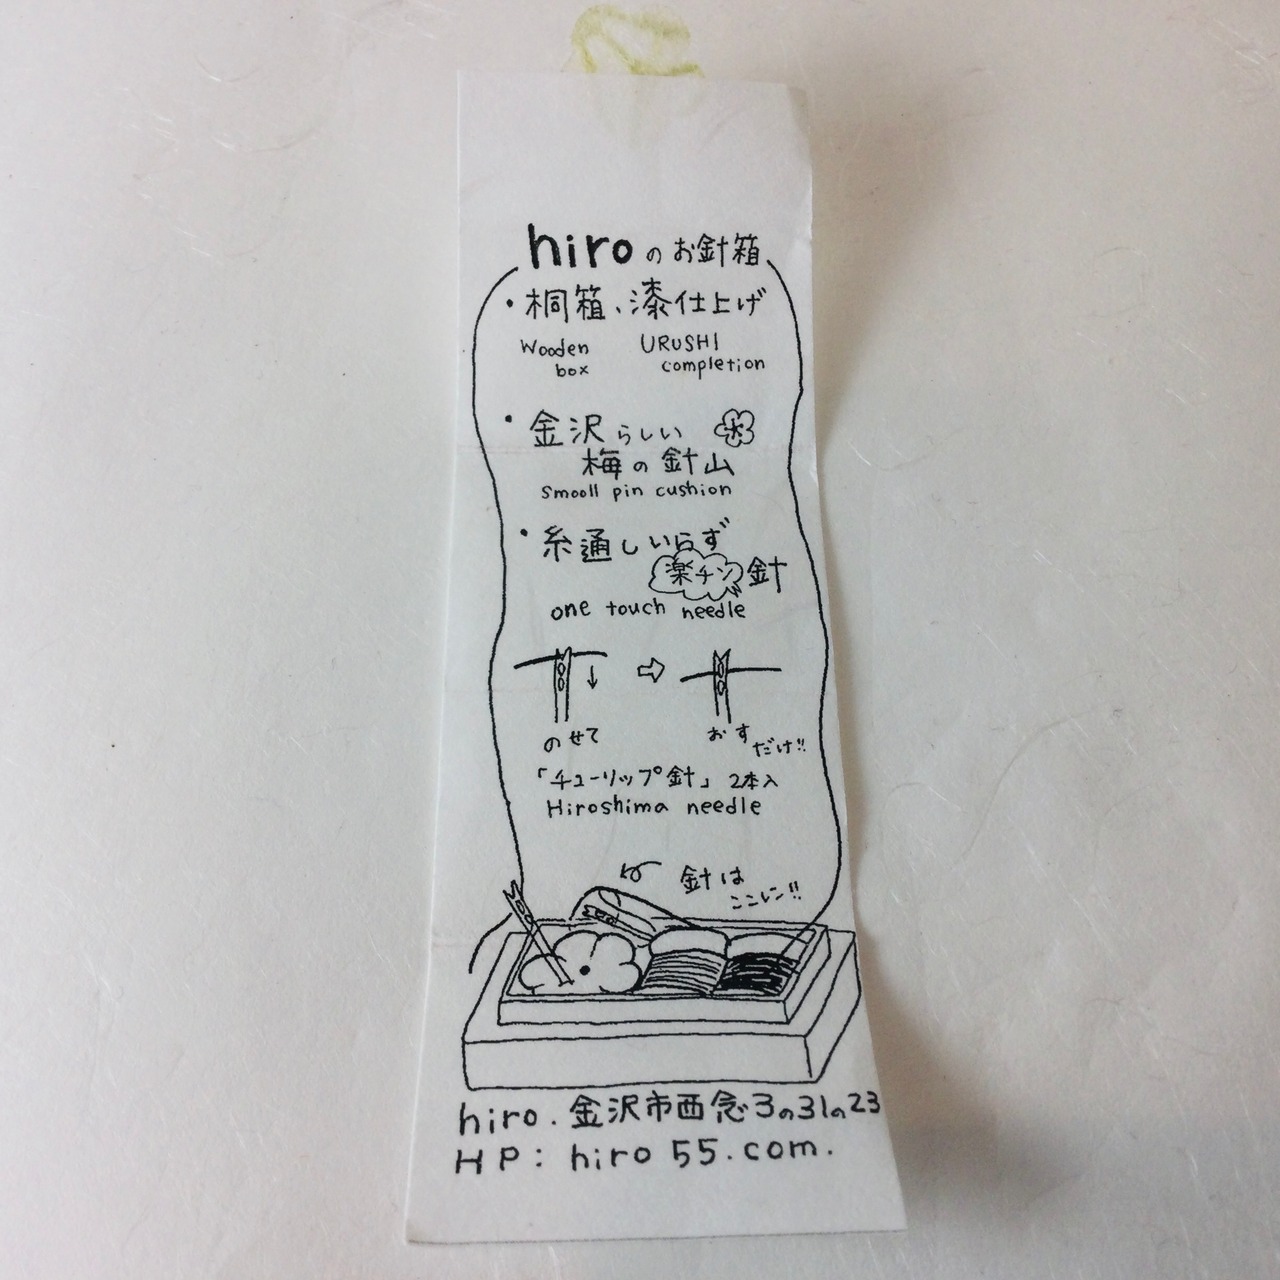 hiroのお針箱
・桐箱、漆仕上げ
Wooden box URUSHI completion
・金沢らしい
梅の針山
Smooll pin cushion
・糸通しいらず
楽チン針
one touch needle
のせて おすだけ!!
「チューリップ針」2本入
Hiroshima needle
針は
ココレン!!
hiro. 金沢市西念3の31の23
HP: hiro55.com.